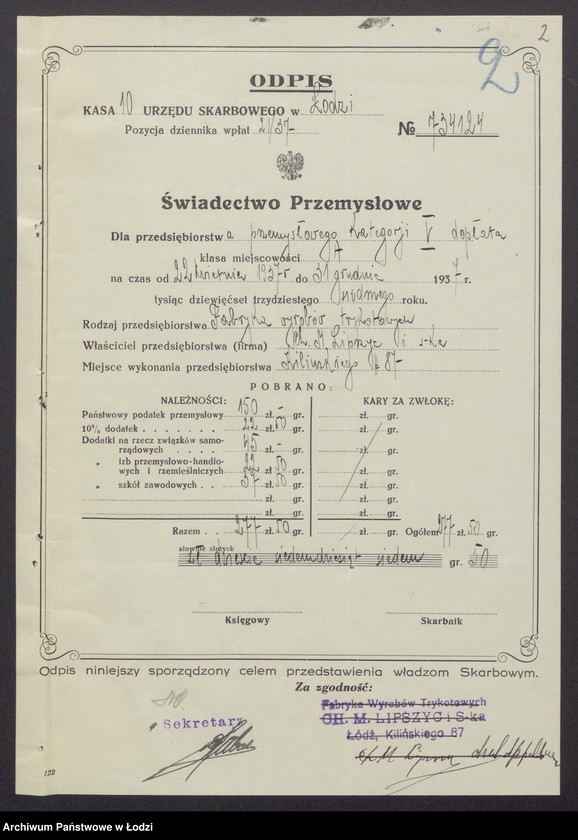 2
2
ODPIS
KASA 10 URZĘDU SKARBOWEGO w Łodzi
Pozycja dziennika wpłat 21/37-
№ 734124
Świadectwo Przemysłowe
Dla przedsiębiorstwa przemysłowego Kategorji V dopłata
klasa miejscowości
na czas od 22 kwietnia 1937 r do 31 grudnia 1937 r.
tysiąc dziewięćset trzydziestego siódmego roku.
Rodzaj przedsiębiorstwa Fabryka wyrobów trykotowych
Właściciel przedsiębiorstwa (firma) Ch. M. Lipszyc i s-ka
Miejsce wykonania przedsiębiorstwa Kilińskiego № 87-
POBRANO:
NALEŻNOŚCI: KARY ZA ZWŁOKĘ:
Państwowy podatek przemysłowy 150 zł. - gr. zł. gr.
10% dodatek 22 zł. 50 gr. zł. gr.
Dodatki na rzecz związków samo-
rządowych 45 zł. - gr. zł. gr.
„ izb przemysłowo-handlo-
wych i rzemieślniczych 22 zł. 50 gr. zł. gr.
„ szkół zawodowych 37 zł. 50 gr. zł. gr.
zł. gr. zł. gr.
zł. gr. zł. gr.
Razem 277 zł. 50 gr. zł. gr. Ogółem 277 zł. 50 gr.
słownie złotych
zł dwieście siedemdziesiąt siedem gr. 50
Księgowy Skarbnik
Odpis niniejszy sporządzony celem przedstawienia władzom Skarbowym.
Za zgodność:
Fabryka Wyrobów Trykotowych
CH. M. LIPSZYC i S-ka
Łódź, Kilińskiego 87
Sekretarz
122
Archiwum Państwowe w Łodzi